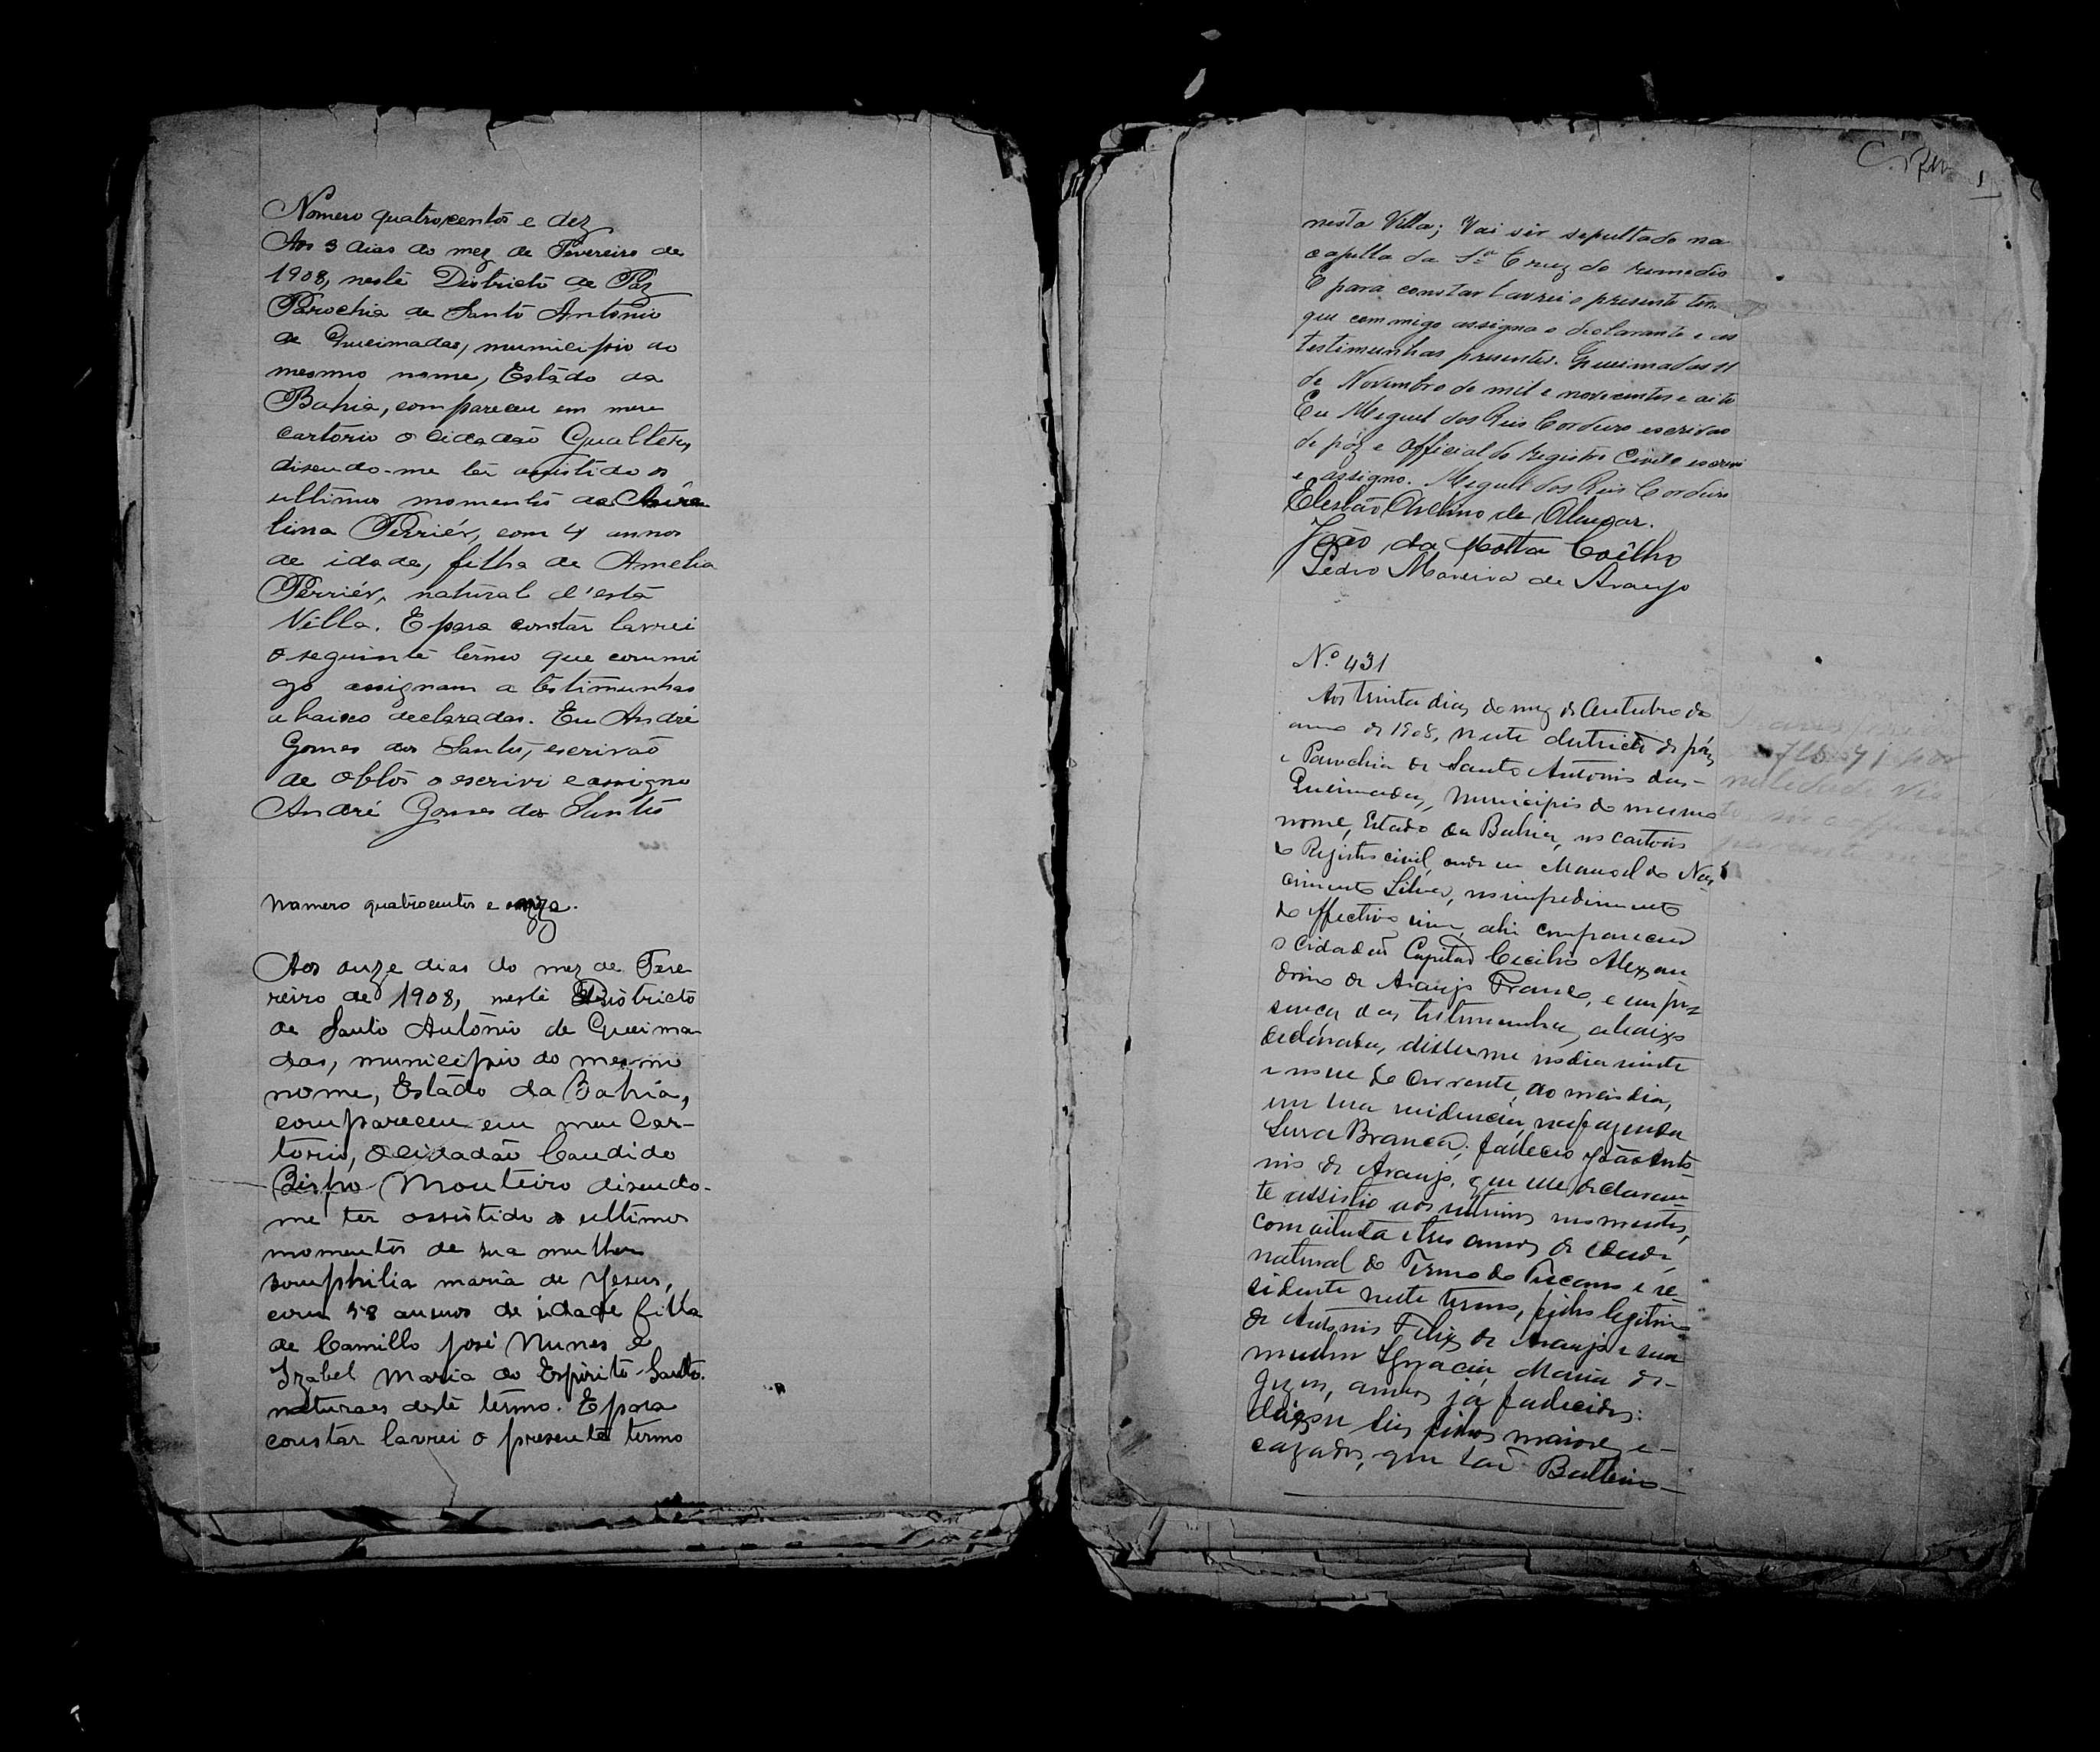 Nomero quatrocentos e dez
Aos 3 dias do mez de Fevereiro de
1908, neste Districto de Paz
Parochia de Santo Antonio
de Queimadas, municipio do
mesmo nome, Estado da
Bahia, compareceu em meu
cartorio o cidadão Gualter,
disendo-me ter assistido os
ultimos momentos de
lina Perriér, com 4 annos
de idade, filha de Amelia
Perriér, natural d'esta
Villa. E para constar lavrei
o seguinte termo que commi
go assignam a testimunhas
abaixo declaradas. Eu André
Gomes dos Santos, escrivão
de oblos o escrivi e assigno
André Gomes dos Santos
Namero quatrocentos e onze.
Aos onze dias do mez de Feve
reiro de 1908, neste Districto
de Santo Antonio de Queima
das, municipio do mesmo
nome, Estado da Bahia,
compareceu em meu Car-
torio, o cidadão Candido
Bispo Monteiro disendo-
me ter assistido os ultimos
momentos de sua mulher
maria de Jesus,
com 58 annos de idade filha
de Camillo José Nunes e
Izabel Maria do Espirito-Santo.
naturaes deste termo. E para
constar lavrei o presente termo
nesta Villa; Vai ser sepultado na
capella da Sta Cruz do remedio
E para constar lavrei o presente ter
que commigo assigna o declarante e as
testimunhas presentes. Queimadas 11
de Novembro de mil e novecentos e oito
Eu Miguel dos Reis Cordeiro escrivão
de páz e official do registro Civil o escrevi
e assigno. Miguel dos Reis Cordeiro
Elesbão Avelino de Alencar.
João da Motta Coêlho
Pedro Moreira de Araujo
N.º 431
Aos trinta dias do mez de Outubro do
anno de 1908, neste districto de páz
e Parochia de Santo Antonio das
Queimadas, Municipio do mesmo
nome, Estado da Bahia, no cartorio
do Registro civil, onde eu Manoel do Nas
cimento Silva, no impedimento
do effectivo vim, ahi compareceu
o Cidadão Capitão Cicilio Alexan
drino de Araujo Franco, e em pre
sença das testimunhas abaixo
declarada, disse-me no dia vinte
e nove do corrente, ao meio dia,
em sua residencia, na fazenda
Serra Branca, falleceo João Anto
nio de Araujo, que elle declaran
te assistio aos ultimos momentos,
com oitenta e tres annos de edade,
natural do Termo do Tucano e re-
sidente neste termo, filho legitimo
de Antonio Felix de Araujo e sua
mulher Ignacia Maria de
Jezus, ambos já fallecidos:
deixou seis filhos maiores e
cazados, que são Balbino